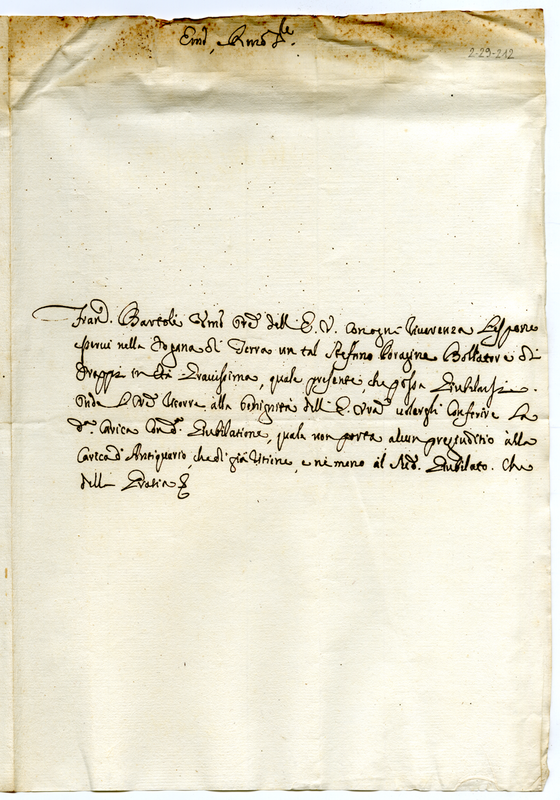 Emo, Rmo Sre.
2-29-212
Franco. Bartoli Umo Ore dell E. V. con ogni riverenza l'espone
esservi nella Dogana di Terra un tal Stefano Voragine Bollatore di
Drappi in età gravissima, quale presente, che possa Giubilarsi.
Onde l'Ore ricorre alla benignità dell E. Vra volergli conferire la
da. carica con da. Giubilatione, quale non porta alcun pregiuditio alla
carica d'Antiquario, che di già ottiene, e ne meno al sudo. Giubilato. Che
della Gratia &